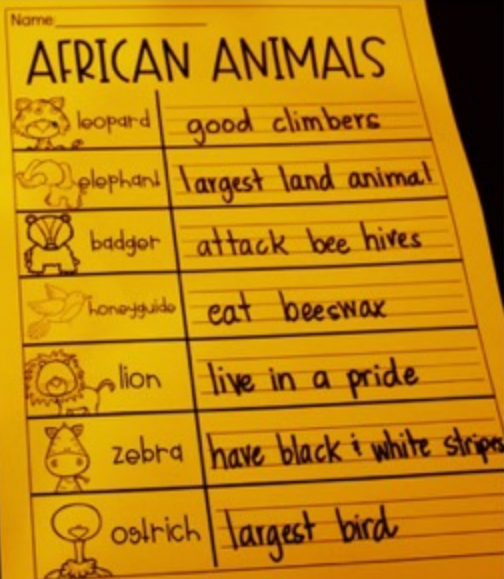 Name:
AFRICAN ANIMALS
leopard good climbers
elephant largest land animal
badger attack bee hives
honeyguide eat beeswax
lion live in a pride
zebra have black & white stripes
ostrich largest bird